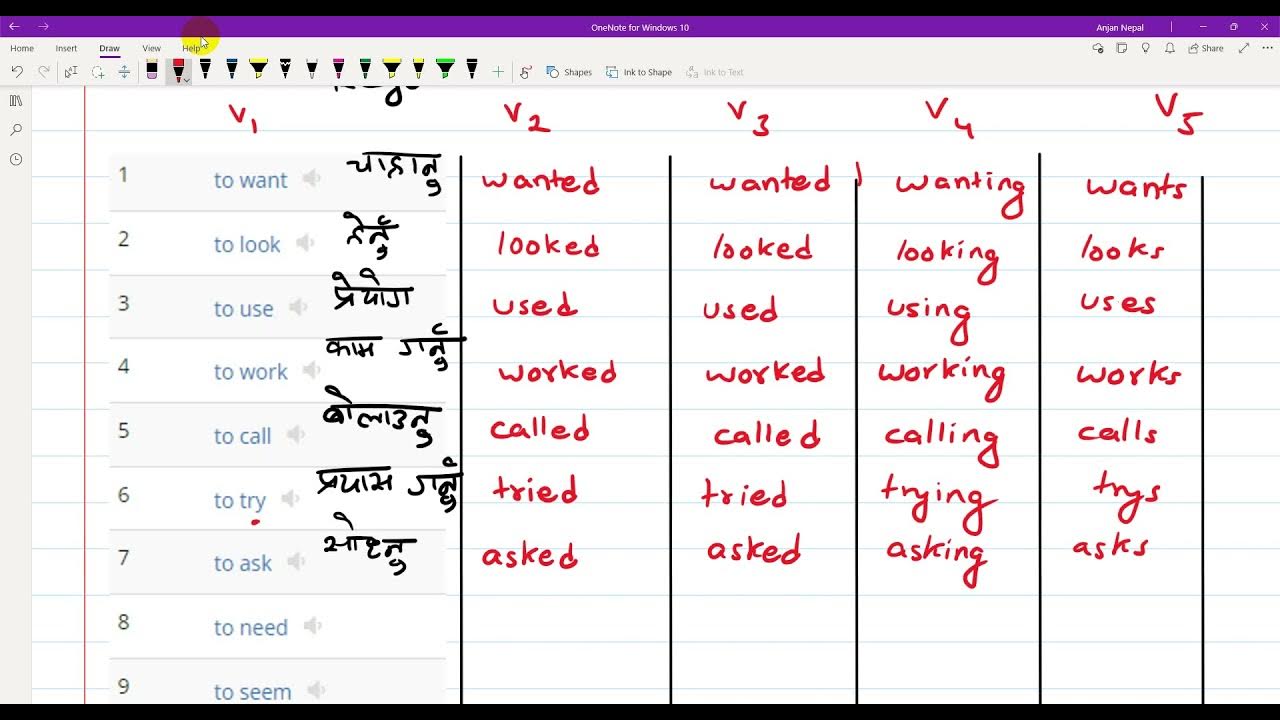 OneNote for Windows 10
Anjan Nepal
Home Insert Draw View Help
Share
Shapes Ink to Shape Ink to Text
V1 V2 V3 V4 V5
1 to want चाहानु wanted wanted wanting wants
2 to look हेर्नु looked looked looking looks
3 to use प्रेयोग used used using uses
4 to work काम गर्नु worked worked working works
5 to call बोलाउनु called called calling calls
6 to try प्रयास गर्नु tried tried trying trys
7 to ask सोध्नु asked asked asking asks
8 to need
9 to seem